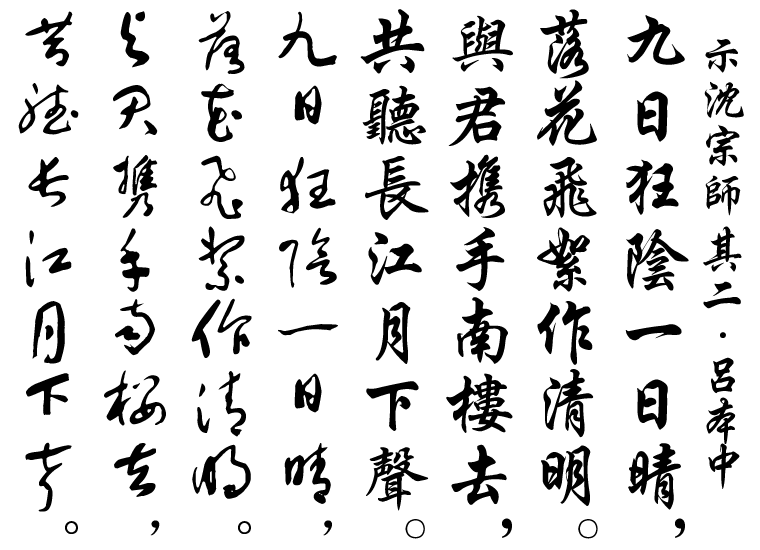 示沈宗師 其二·呂本中
九日狂陰一日晴，
落花飛絮作清明。
與君携手南樓去，
共聽長江月下聲。
九日狂陰一日晴，
落花飛絮作清明。
與君携手南樓去，
共聽長江月下聲。